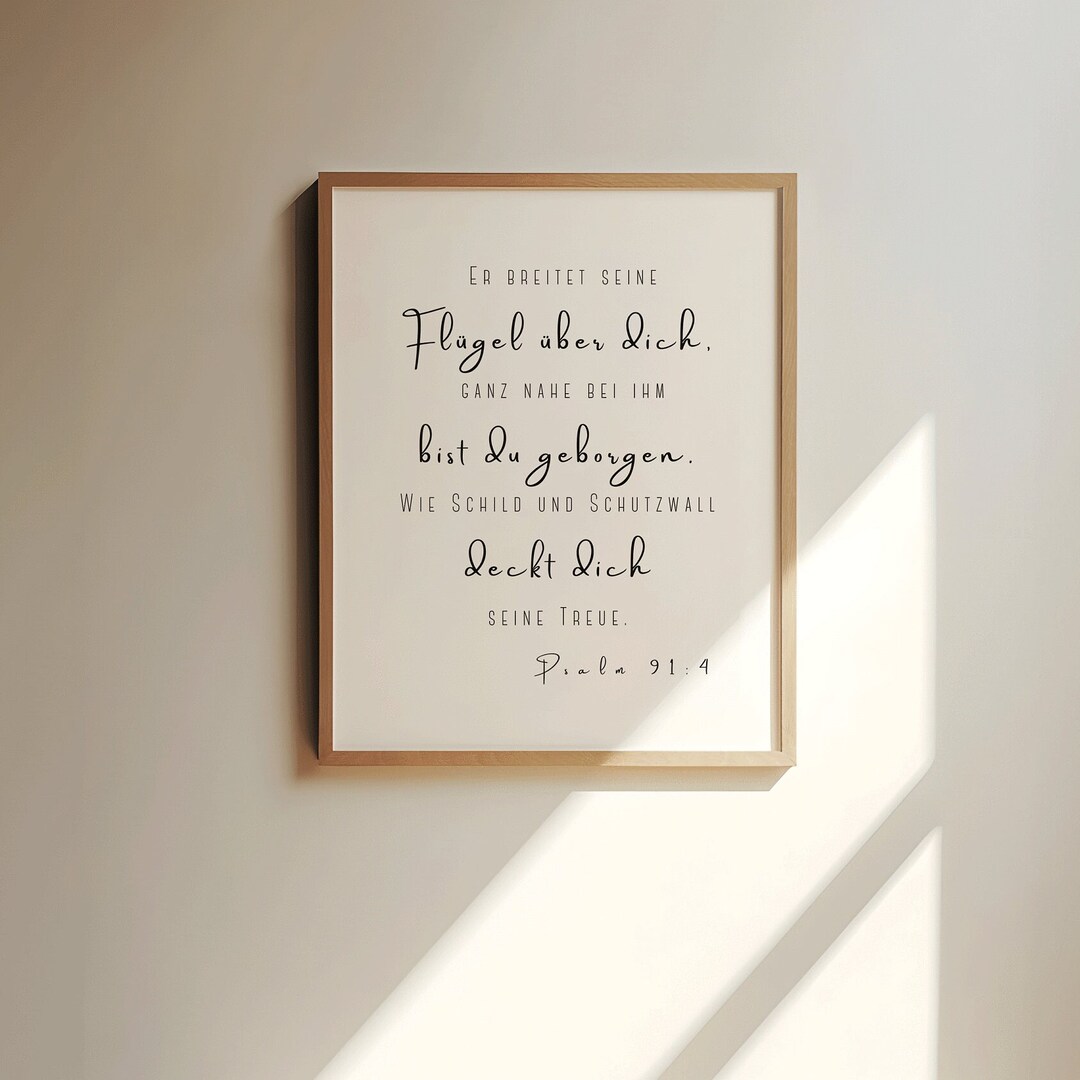 Er breitet seine
Flügel über dich,
ganz nahe bei ihm
bist du geborgen.
Wie Schild und Schutzwall
deckt dich
seine Treue.
Psalm 91:4